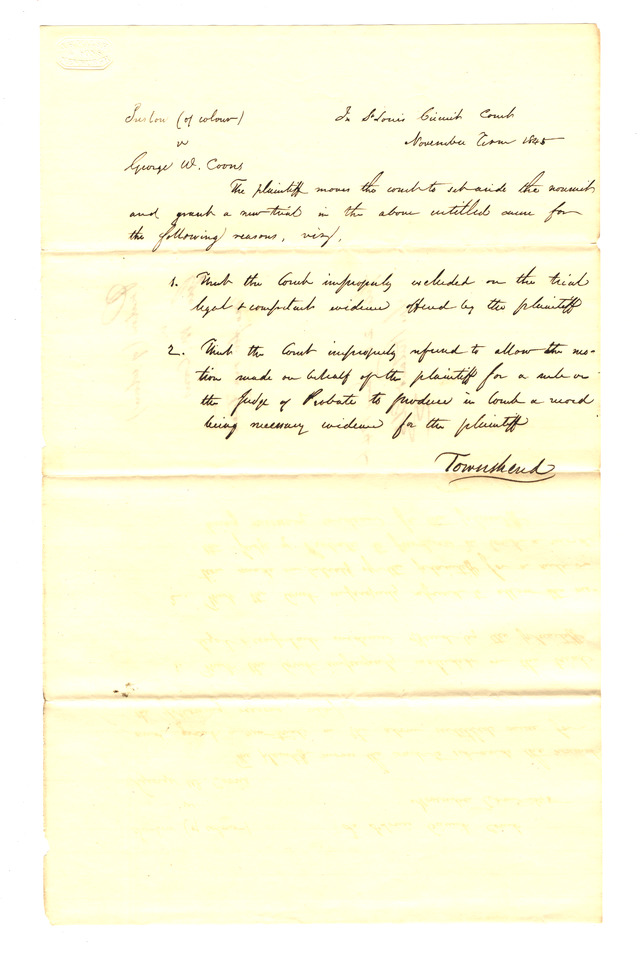 Preston (of colour) In St Louis Circuit Court
v November Term 1845
George W. Coons
The plaintiff moves the court to set aside the nonsuit
and grant a new trial in the above entitled cause for
the following reasons, viz,
1. That the Court improperly excluded on the trial
legal & competent evidence offered by the plaintiff
2. That the Court improperly refused to allow the mo-
tion made on behalf of the plaintiff for a rule on
the Judge of Probate to produce in Court a record
being necessary evidence for the plaintiff
Townshend